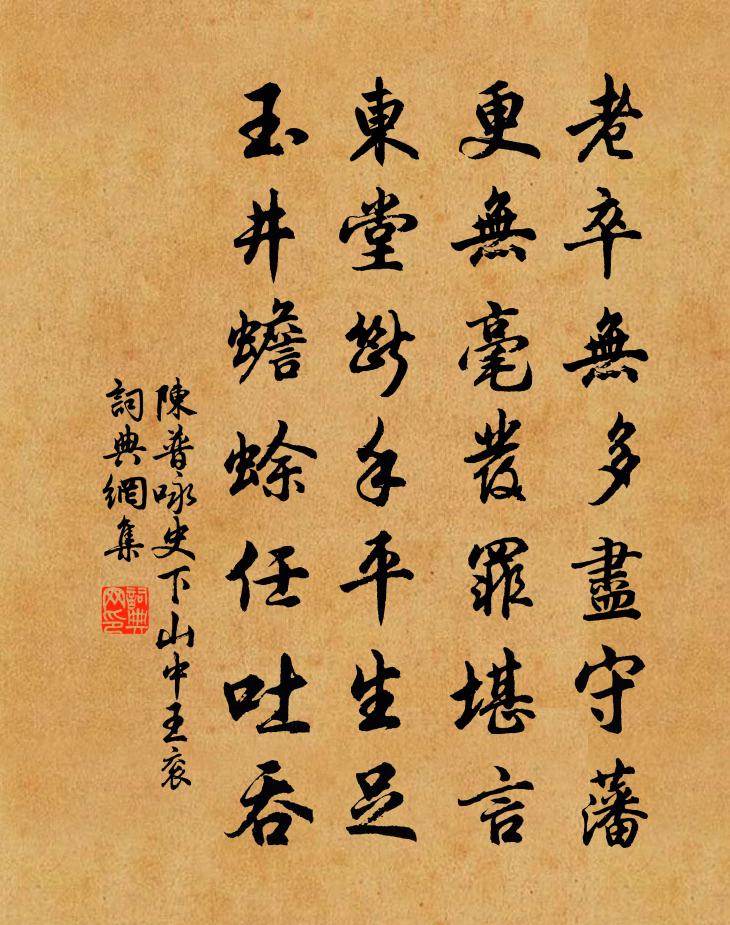 老卒無多盡守藩
更無毫發罪堪言
東堂斷手平生足
玉井蟾蜍任吐吞
陳普咏史下山中王裒
詞典網集
詞典网印